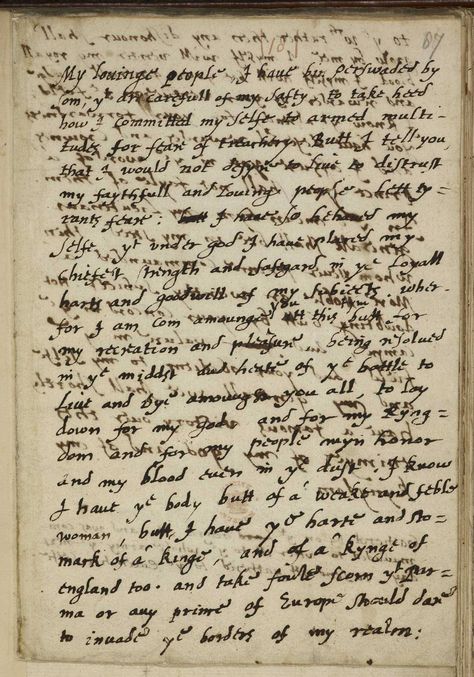 87
My loving people, I have bin perswaded by
som, yt are carefull of my safty, to take heed
how I committed my selfe to armed multi-
tudes for fear of treachery. Butt I tell you,
that I would not desyre to live to distrust
my faythfull and loving people. Lett ty-
rants feare: I have so behaved my
selfe yt under god I have placed my
chiefest strength and safgard in ye loyall
harts and goodwill of my subjects. wher-
for I am com amounge you att this butt for
my recreation and pleasure being resolved
in ye middst and heate of ye battle to
live and dye amoungst you all to lay
down for my god and for my kyng-
dom and for my people myn honor
and my blood even in ye dust I know
I have ye body butt of a weake and feble
woman, butt I have ye harte and sto-
mark of a kinge, and of a kynge of
england too. and take foule scorn yt par-
ma or any prince of Europe should dare
to invade ye borders of my realm: